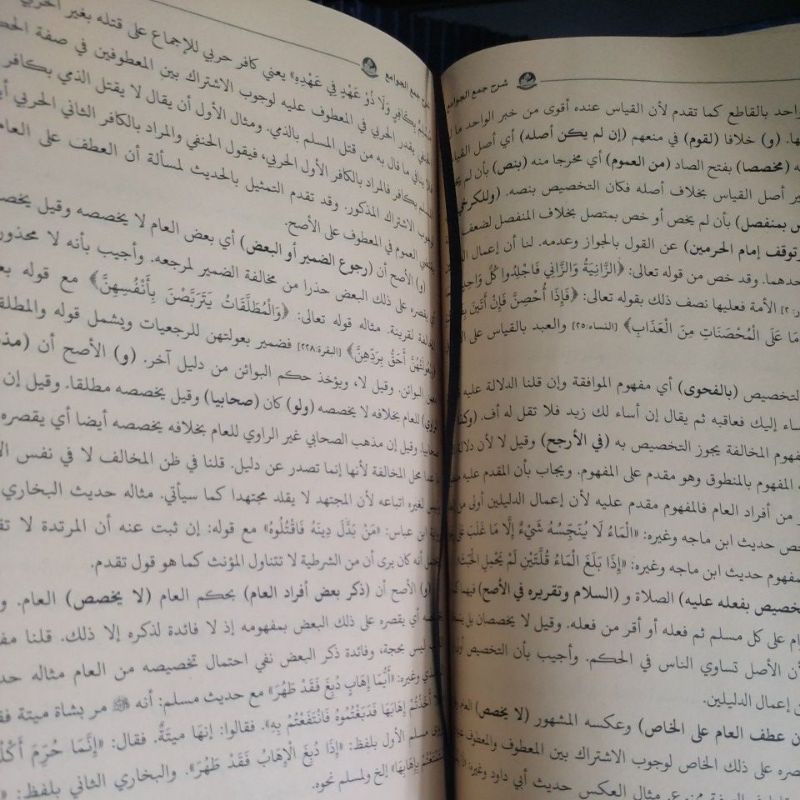 شرح جمع الجوامع
واحد بالقاطع كما تقدم لأن القياس عنده أقوى من خبر الواحد ما
(و) خلافا (لقوم) في منعهم (إن لم يكن أصله) أي أصل القياس
(مخصصا) بفتح الصاد (من العموم) أي مخرجا منه (بنص) بأن لم
أصل القياس بخلاف أصله فكان التخصيص بنصه. (وللكرخي
بمنفصل) بأن لم يخص أو خص بمتصل بخلاف المنفصل لضعف
(وتوقف إمام الحرمين) عن القول بالجواز وعدمه. لنا أن إعمال
أحدهما. وقد خص من قوله تعالى: ﴿الزَّانِيَةُ وَالزَّانِي فَاجْلِدُوا كُلَّ وَاحِدٍ
الأمة فعليها نصف ذلك بقوله تعالى: ﴿فَإِذَا أُحْصِنَّ فَإِنْ أَتَيْنَ
مَا عَلَى الْمُحْصَنَاتِ مِنَ الْعَذَابِ﴾ [النساء:٢٥] والعبد بالقياس على
التخصيص (بالفحوى) أي مفهوم الموافقة وإن قلنا الدلالة عليه
أساء إليك فعاقبه ثم يقال إن أساء لك زيد فلا تقل له أف. (وكذا
مفهوم المخالفة يجوز التخصيص به (في الأرجح) وقيل لا لأن دلالة
المفهوم بالمنطوق وهو مقدم على المفهوم. ويجاب بأن المقدم عليه
من أفراد العام فالمفهوم مقدم عليه لأن إعمال الدليلين أولى من
خص حديث ابن ماجه وغيره: «الْمَاءُ لَا يُنَجِّسُهُ شَيْءٌ إِلَّا مَا غَلَبَ عَلَى
بمفهوم حديث ابن ماجه وغيره: «إِذَا بَلَغَ الْمَاءُ قُلَّتَيْنِ لَمْ يَحْمِلِ الْخَبَثَ
التخصيص بفعله عليه) الصلاة و (السلام وتقريره في الأصح) فيهما
على كل مسلم ثم فعله أو أقر من فعله. وقيل لا يخصصان بل
أن الأصل تساوي الناس في الحكم. وأجيب بأن التخصيص أولى
إعمال الدليلين.
أن عطف العام على الخاص) وعكسه المشهور (لا يخصص) العام
يقصره على ذلك الخاص لوجوب الاشتراك بين المعطوف والمعطوف
مثال العكس حديث أبي داود وغيره:
شرح جمع الجوامع
بِكَافِرٍ وَلَا ذُو عَهْدٍ فِي عَهْدِهِ» يعني كافر حربي للإجماع على قتله بغير الحربي
يقدر الحربي في المعطوف عليه لوجوب الاشتراك بين المعطوفين في صفة
ما قال به من قتل المسلم بالذمي. ومثال الأول أن يقال لا يقتل الذمي بكافر
المسلم بكافر فالمراد بالكافر الأول الحربي، فيقول الحنفي والمراد بالكافر الثاني الحربي
لوجوب الاشتراك المذكور. وقد تقدم التمثيل بالحديث لمسألة أن العطف على العام
العموم في المعطوف على الأصح.
(و) الأصح أن (رجوع الضمير أو البعض) أي بعض العام لا يخصصه وقيل
أي يقصره على ذلك البعض حذرا من مخالفة الضمير لمرجعه. وأجيب بأنه لا محذور
لقرينة. مثاله قوله تعالى: ﴿وَالْمُطَلَّقَاتُ يَتَرَبَّصْنَ بِأَنْفُسِهِنَّ﴾ مع قوله
وَبُعُولَتُهُنَّ أَحَقُّ بِرَدِّهِنَّ﴾ [البقرة:٢٢٨] فضمير بعولتهن للرجعيات ويشمل قوله
البوائن. وقيل لا، ويؤخذ حكم البوائن من دليل آخر. (و) الأصح أن
للعام بخلافه لا يخصصه (ولو) كان (صحابيا) وقيل يخصصه مطلقا. وقيل إن
وقيل إن مذهب الصحابي غير الراوي للعام بخلافه يخصصه أيضا أي يقصره
محل المخالفة لأنها إنما تصدر عن دليل. قلنا في ظن المخالف لا في نفس
لغيره اتباعه لأن المجتهد لا يقلد مجتهدا كما سيأتي. مثاله حديث البخاري
ابن عباس: «مَنْ بَدَّلَ دِينَهُ فَاقْتُلُوهُ» مع قوله: إن ثبت عنه أن المرتدة لا
أنه كان يرى أن من الشرطية لا تتناول المؤنث كما هو قول تقدم.
(و) الأصح أن (ذكر بعض أفراد العام) بحكم العام (لا يخصص) العام.
أي يقصره على ذلك البعض بمفهومه إذ لا فائدة لذكره إلا ذلك. قلنا
ليس بحجة، وفائدة ذكر البعض نفي احتمال تخصيصه من العام مثاله
وغيره: «أَيُّمَا إِهَابٍ دُبِغَ فَقَدْ طَهُرَ» مع حديث مسلم: أنه ﷺ مر بشاة ميتة
أَخَذْتُمْ إِهَابَهَا فَدَبَغْتُمُوهُ فَانْتَفَعْتُمْ بِهِ». فقالوا: إنها ميتةٌ. فقال: «إِنَّمَا حُرِّمَ
مسلم الأول بلفظ: «إِذَا دُبِغَ الْإِهَابُ فَقَدْ طَهُرَ». والبخاري الثاني بلفظ:
بِإِهَابِهَا» إلخ ولمسلم نحوه.